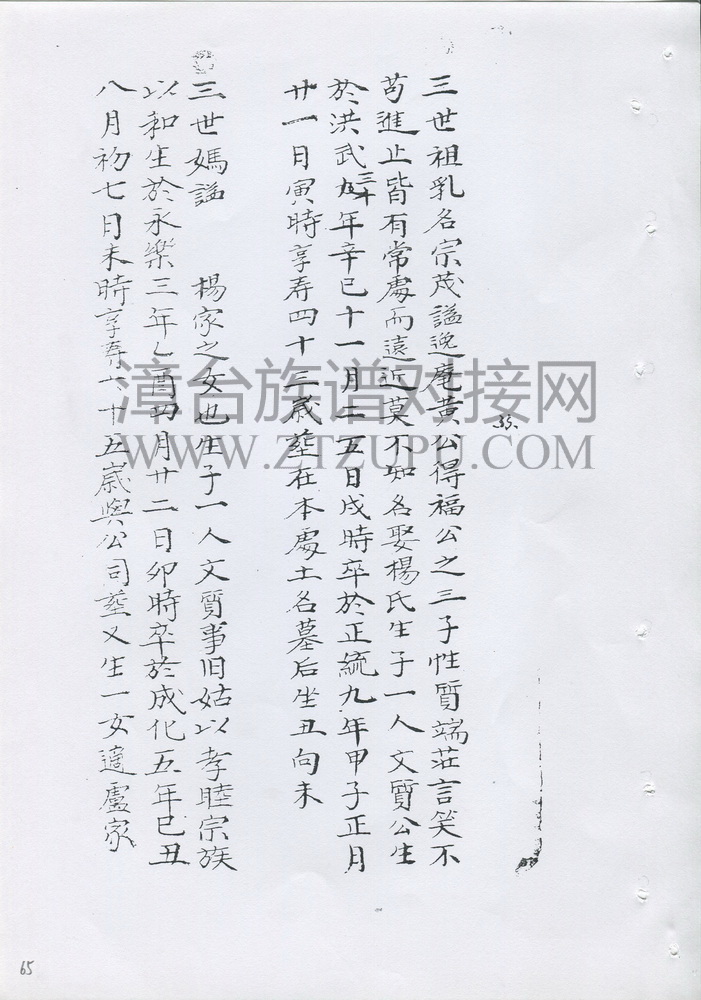 三世祖乳名宗茂謚逸庵黄公得福公之三子性質端莊言笑不
苟進止皆有常處而遠近莫不知名娶楊氏生子一人文質公生
於洪武三十年辛巳十一月二五日戌時卒於正統九年甲子正月
廿一日寅時享寿四十三歲塟在本處土名墓后坐丑向未
三世媽謚 楊家之女也生子一人文質事旧姑以孝睦宗族
以和生於永樂三年乙酉四月廿二日卯時卒於成化五年己丑
八月初七日未時享寿六十五歲與公司塟又生一女適盧家
漳台族谱对接网
WWW.ZTZUPU.COM
65